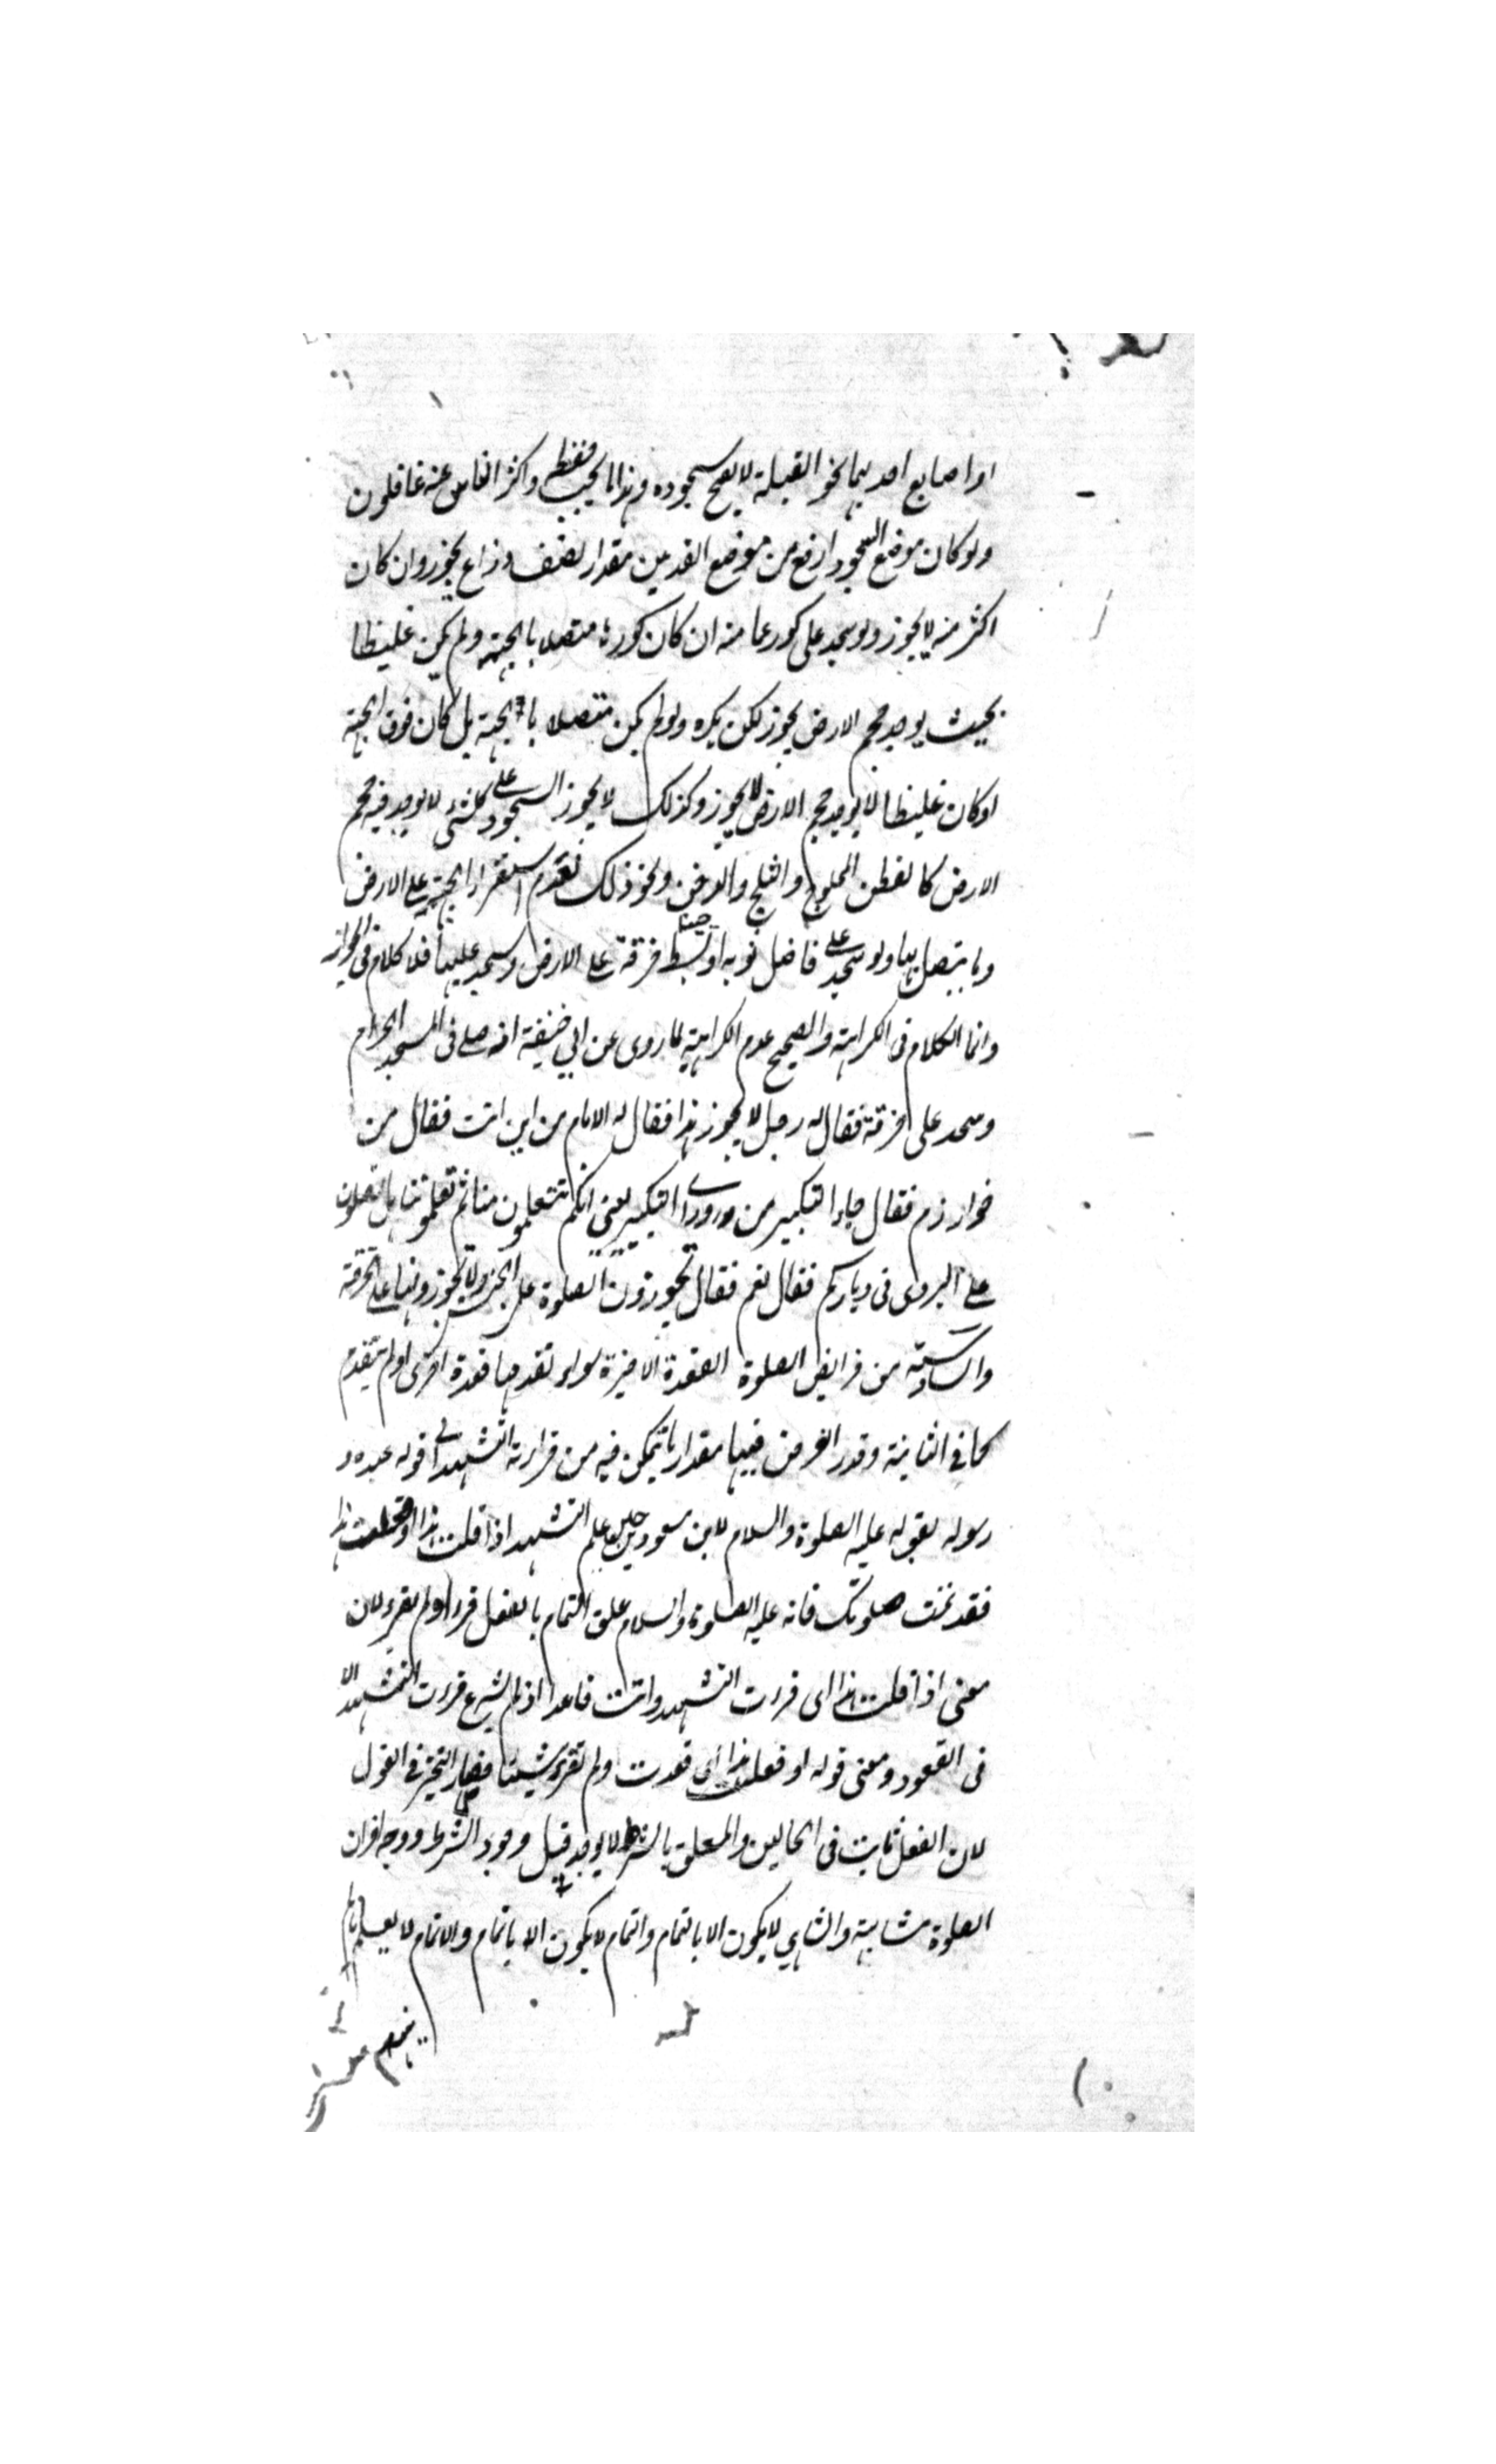 او اصابع احديهما نحو القبلة لا يصح سجوده وهذا مما يجب حفظه واكثر الناس عنه غافلون
ولو كان موضع السجود ارفع من موضع القدمين مقدار نصف ذراع يجوز وان كان
اكثر منه لا يجوز ولو سجد على كور عمامته ان كان كورها متصلا بالجبهة ولم يكن غليظا
بحيث يوجد حجم الارض يجوز لكن يكره ولو لم يكن متصلا بالجبهة بل كان فوق الجبهة
او كان غليظا لا يوجد حجم الارض لا يجوز وكذلك لا يجوز السجود على كل شئ لا يوجد فيه حجم
الارض كالقطن المحلوج والثلج والدخن ونحو ذلك لعدم استقرار الجبهة على الارض
وما يتصل بها ولو سجد على فاضل ثوبه او بسط خرقة على الارض وسجد عليها فلا كلام في الجواز
وانما الكلام فى الكراهة والصحيح عدم الكراهية لما روى عن ابي حنيفة انه صلى فى المسجد الحرام
وسجد على خرقة فقال له رجل لا يجوز هذا فقال له الامام من اين انت فقال من
خوارزم فقال جاء التكبير من وراء التكبير يعني انكم تتعلمون منا ثم تعلموننا هل تصلون
على البردى فى دياركم فقال نعم فقال تجوزون الصلوة على الحشيش ولا تجوزونها على الخرقة
والسادسة من فرايض الصلوة القعدة الاخيرة سواء تقدمها قعدة اخرى او لم يتقدم
كما في الثانية وقدر الفرض فيها مقدار ما يتمكن فيه من قراءة التشهد الى قوله عبده و
رسوله لقوله عليه الصلوة والسلام لابن مسعود حين علم التشهد اذا قلت هذا او فعلت هذا
فقد تمت صلوتك فانه عليه الصلوة والسلام علق التمام بالفعل قرء او لم يقرء لان
معنى اذا قلت هذا اى قرءت التشهد وانت قاعد اذ لم يشرع قرءت التشهد الا
فى القعود ومعنى قوله او فعلت هذا اى قعدت ولم تقرء شيئا فصار التخيير في القول
لان الفعل ثابت فى الحالين والمعلق بالشرط لا يوجد قبل وجود الشرط ووجه اخر ان
الصلوة متناهية والتناهي لا يكون الا بالتمام والتمام لا يكون الا باتمام والاتمام لا يعلم